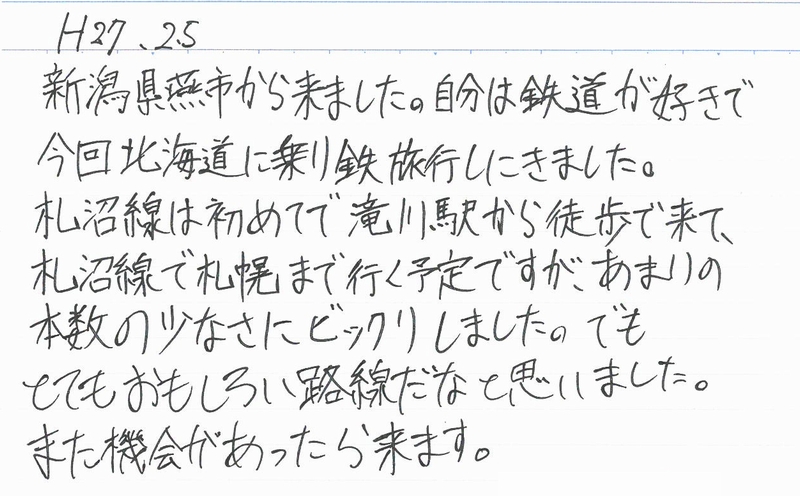 H27.2.5
新潟県燕市から来ました。自分は鉄道が好きで
今回北海道に乗り鉄旅行しにきました。
札沼線は初めてで滝川駅から徒歩で来て、
札沼線で札幌まで行く予定ですが、あまりの
本数の少なさにビックリしました。でも
とてもおもしろい路線だなと思いました。
また機会があったら来ます。